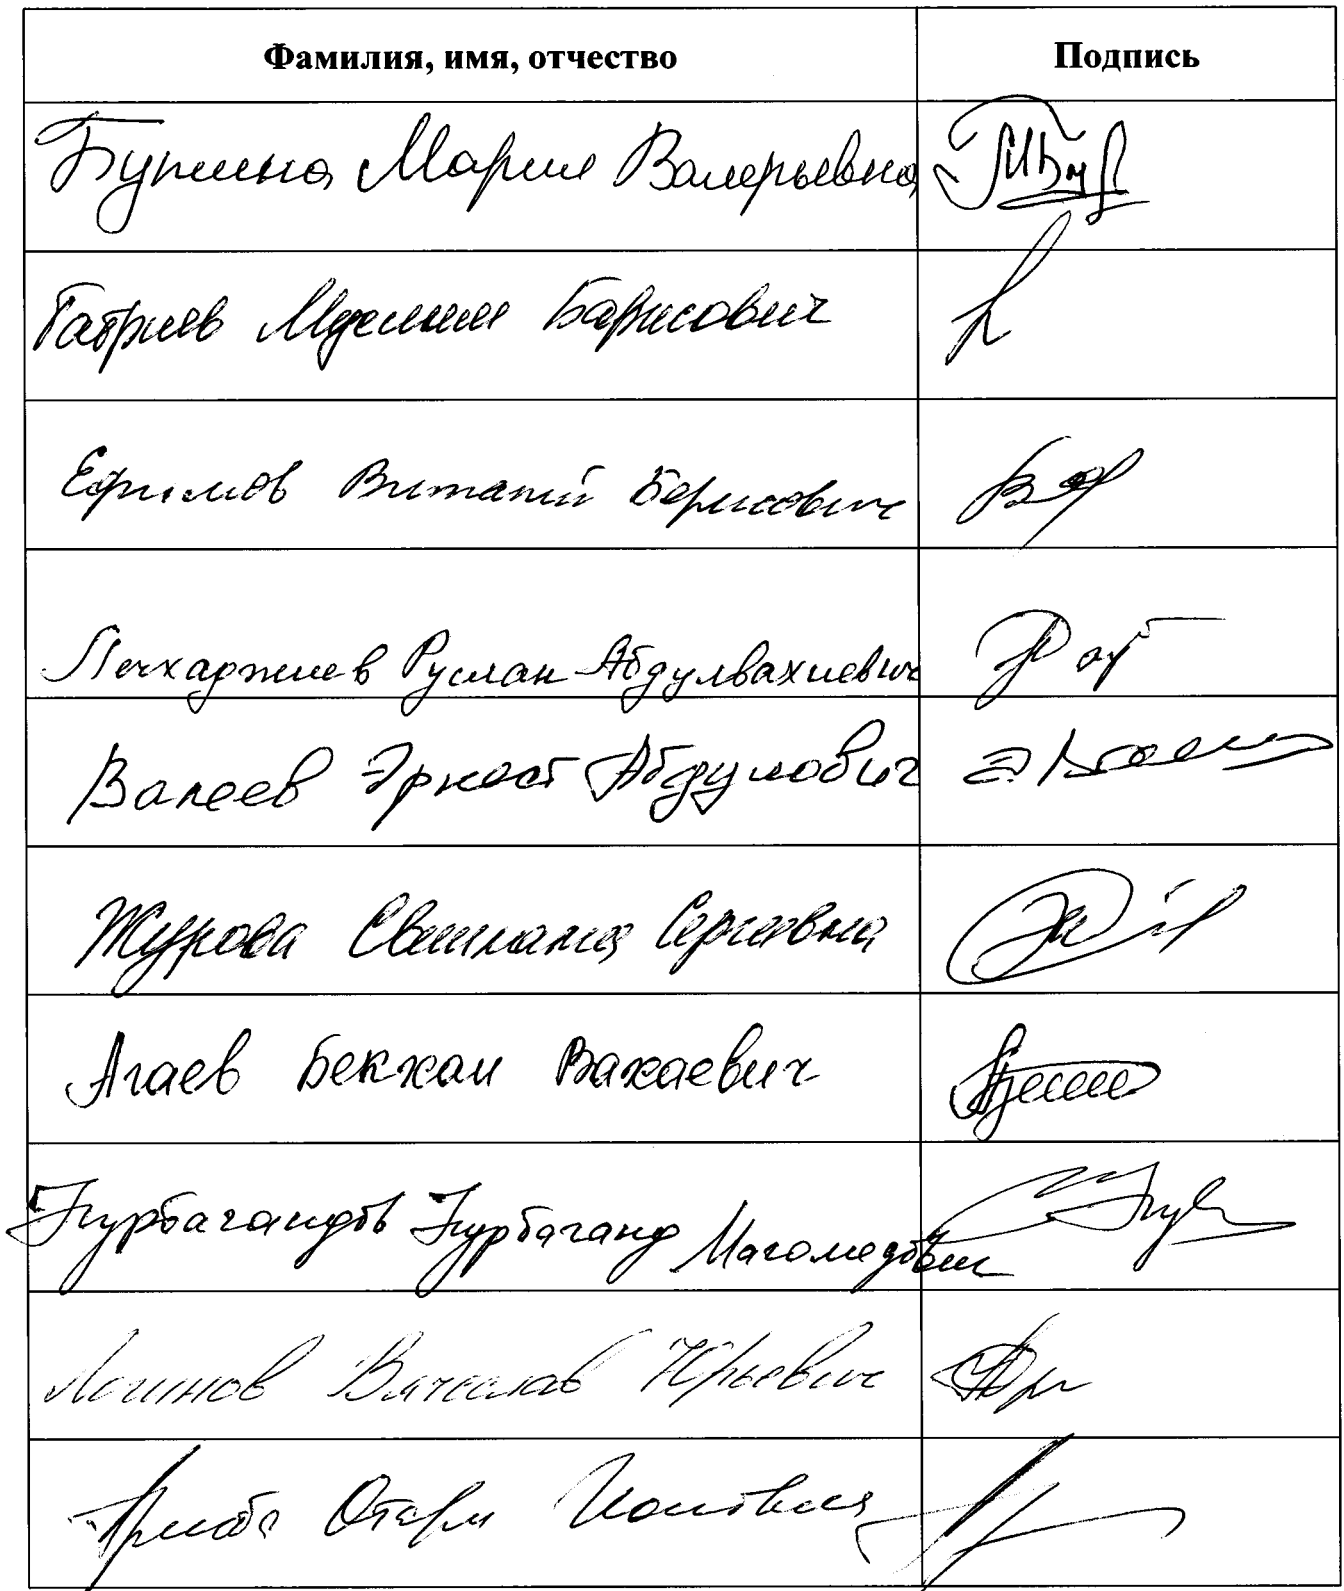 Фамилия, имя, отчество Подпись
Бутина Мария Валерьевна
Табриев Муслим Барисович
Ефимов Виталий Борисович
Лечхаджиев Руслан Абдулвахиевич
Валеев Эрнест Абдулович
Журова Светлана Сергеевна
Агаев Бекхан Вахаевич
Курбагандов Курбаганд Магомедович
Логинов Вячеслав Юрьевич
Аршба Отари Ионович